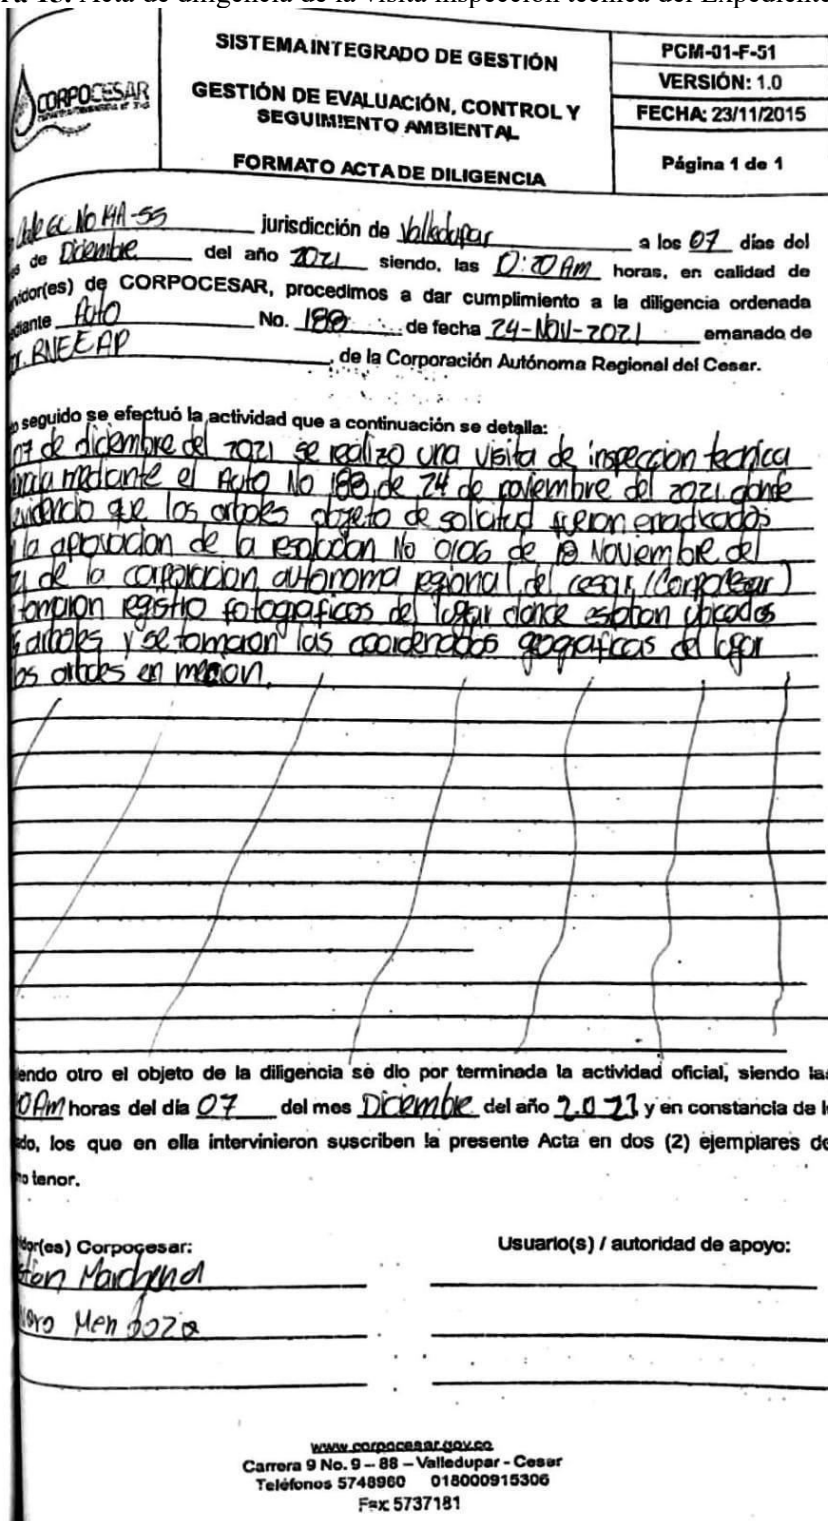 Acta de diligencia de la visita inspección técnica del Expediente
CORPOCESAR
SISTEMA INTEGRADO DE GESTIÓN
GESTIÓN DE EVALUACIÓN, CONTROL Y
SEGUIMIENTO AMBIENTAL
FORMATO ACTA DE DILIGENCIA
PCM-01-F-51
VERSIÓN: 1.0
FECHA: 23/11/2015
Página 1 de 1
No 19A-55 jurisdicción de Valledupar a los 07 días del
de Diciembre del año 2021 siendo, las horas, en calidad de
vidor(es) de CORPOCESAR, procedimos a dar cumplimiento a la diligencia ordenada
diante Auto No. 188 de fecha 24-NOV-2021 emanado de
, de la Corporación Autónoma Regional del Cesar.
seguido se efectuó la actividad que a continuación se detalla:
07 de diciembre del 2021 se realizo una visita de inspeccion tecnica
mediante el Auto No 188 de 24 de noviembre del 2021 donde
que los arboles objeto de solicitud fueron erradicados
la aprobacion de la resolucion No 0106 de Noviembre del
de la corporacion autonoma regional del cesar (Corpocesar)
tomaron registro fotograficos del lugar donde estaban ubicados
arboles y se tomaron las coordenadas geograficas del lugar
os arboles en mencion.
iendo otro el objeto de la diligencia se dio por terminada la actividad oficial, siendo las
0 Am horas del día 07 del mes Diciembre del año y en constancia de l
ado, los que en ella intervinieron suscriben la presente Acta en dos (2) ejemplares de
mo tenor.
idor(es) Corpocesar:
Usuario(s) / autoridad de apoyo:
Marchena
Mendoza
www.corpocesar.gov.co
Carrera 9 No. 9 – 88 – Valledupar - Cesar
Teléfonos 5748960 018000915306
Fax 5737181